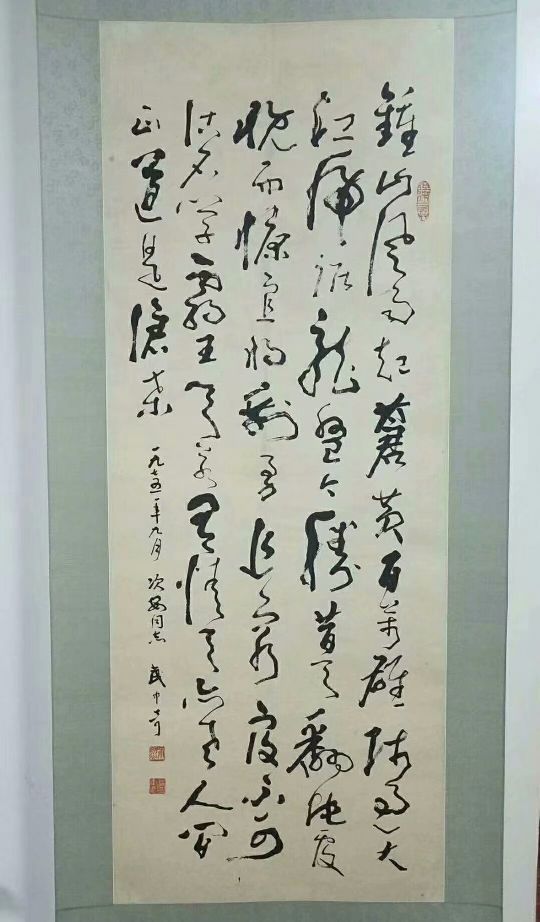 鍾山風雨起蒼黃百萬雄師過大
江虎踞龍盤今勝昔天翻地覆
慨而慷宜將剩勇追窮寇不可
沽名學霸王天若有情天亦老人間
正道是滄桑 一九七五年九月 同志 武中奇